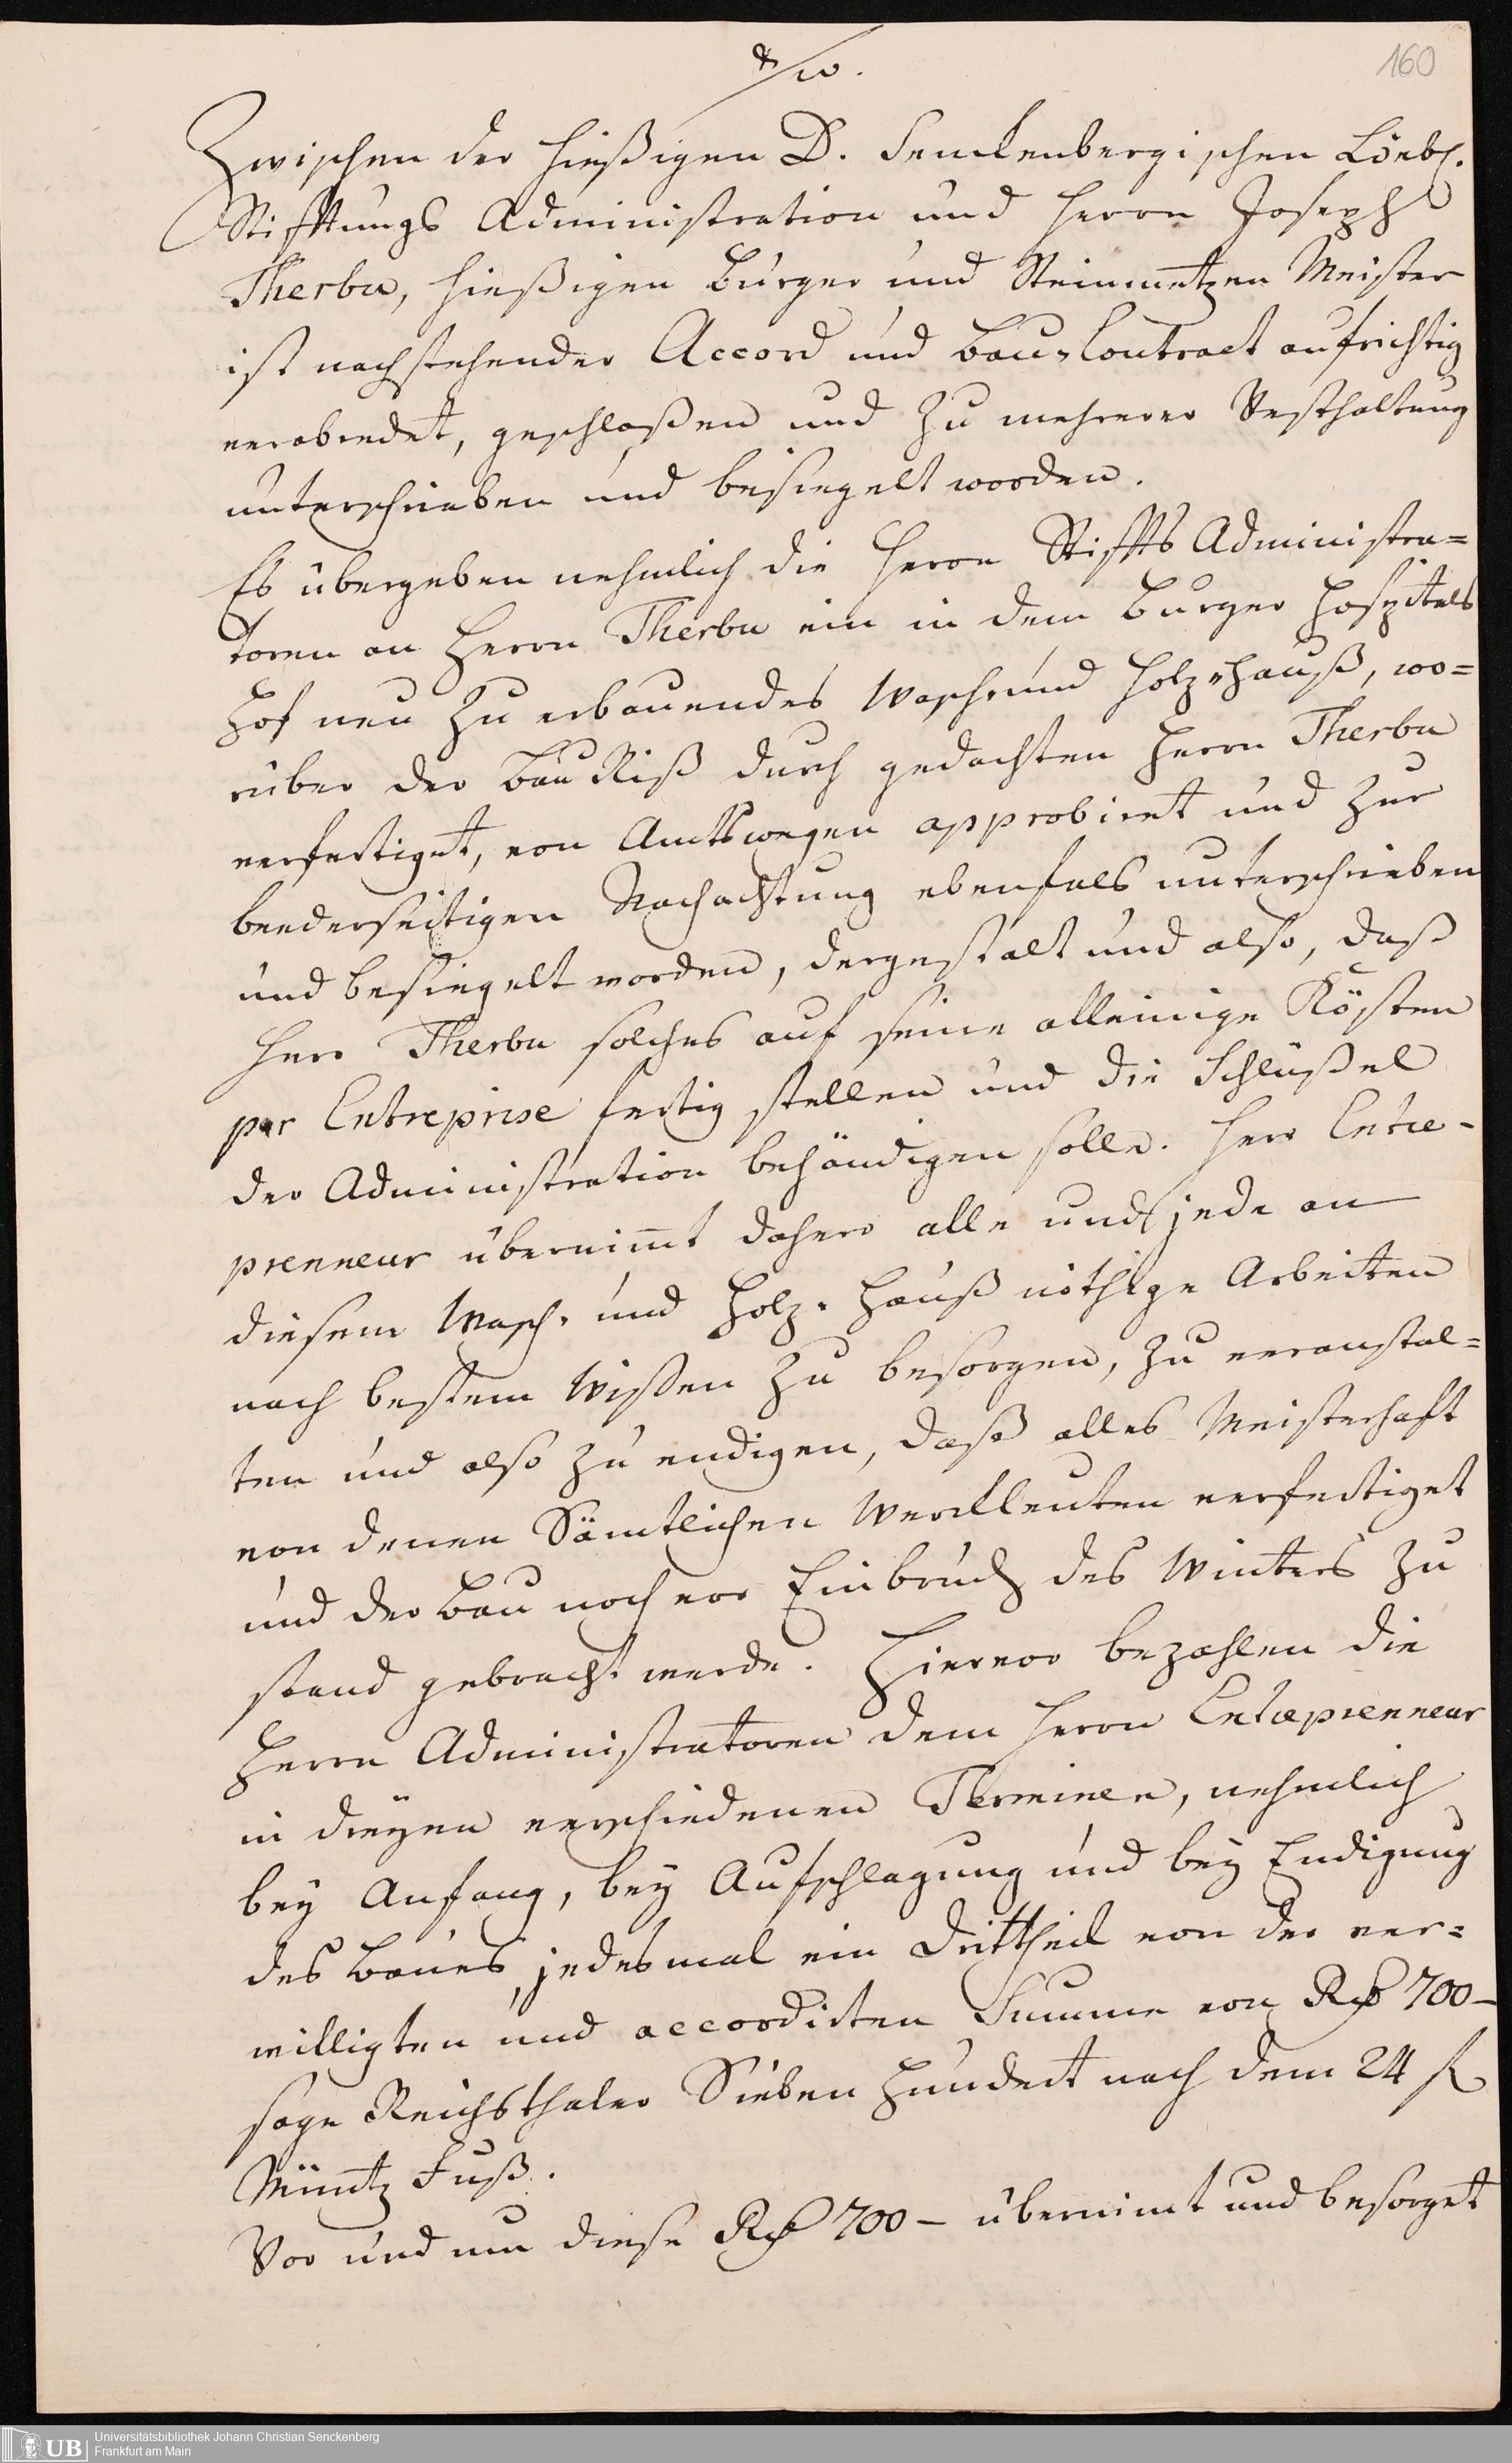 160
Zwischen der hießigen D. Senckenbergischen Löebl.
Stifftungs Administration und Herrn Joseph
Therbu, hießigen Burger und Steinmetzen Meister
ist nachstehender Accord und Bau-Contract aufrichtig
verabredet, geschloßen und zu mehrerer Vesthaltung
unterschrieben und besiegelt worden.
Es übergeben nehmlich die Herrn Stiffts Administra=
toren an Herrn Therbu ein in dem Burger Hospitals
Hof neu zu erbauendes Wasch und Holz-Hauß, wo=
rüber der Bau Riß durch gedachten Herrn Therbu
verfertiget, von Amtswegen approbiret und zur
beederseitigen Nachachtung ebenfals unterschrieben
und besiegelt worden, dergestalt und also, daß
Herr Therbu solches auf seine alleinige Kösten
par Entreprise fertig stellen und die Schlüßel
der Administration behändigen solle. Herr Entre-
prenneur übernimt dahero alle und jede an
diesem Wasch- und Holz-Hauß nöthige Arbeiten
nach bestem Wißen zu besorgen, zu veranstal=
ten und also zu endigen, daß alles Meisterhaft
von denen Sämtlichen Werckleuten verfertiget
und der Bau noch vor Einbruch des Winters zu
stand gebracht werde. Hiervor bezahlen die
Herrn Administratoren dem Herrn Entreprenneur
in dreyen verschiedenen Terminen, nehmlich
bey Anfang, bey Aufschlagung und bey Endigung
des Baues, jedesmal ein Dritttheil von der ver=
willigten und accordirten Summe von Rth 700 –
sage Reichsthaler Sieben Hundert nach dem 24 fl
Müntz Fuß.
Vor und um diese Rth 700 – übernimt und besorget
UB
Universitätsbibliothek Johann Christian Senckenberg
Frankfurt am Main